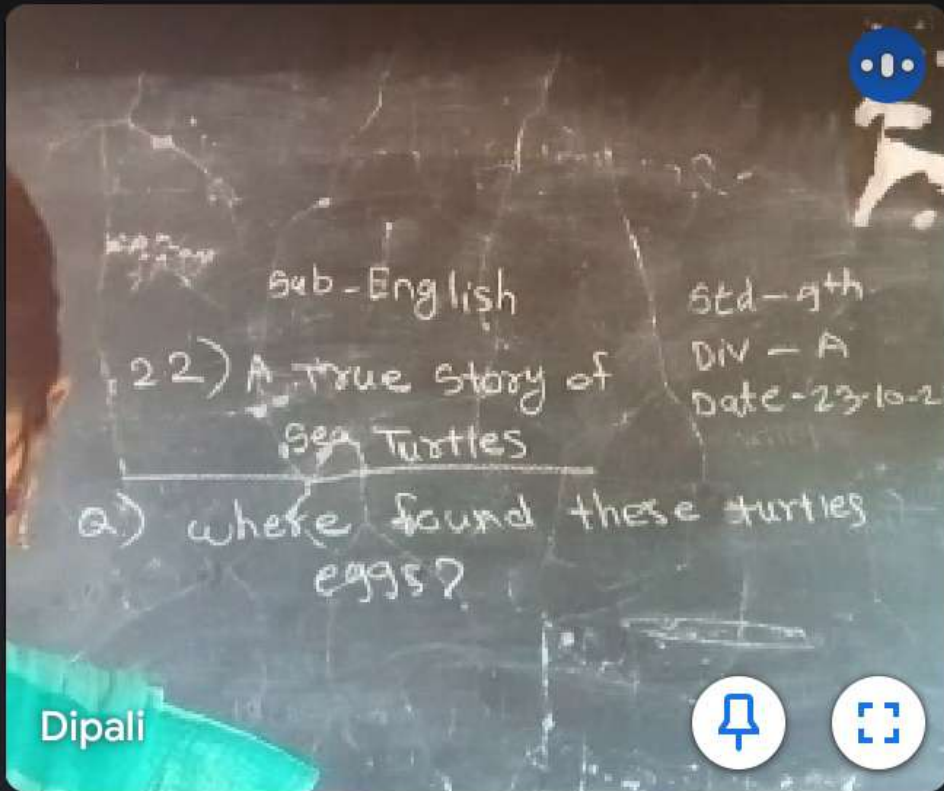 Sub-English
Std-9th
Div - A
Date-23-10-2
22) A True Story of
Sea Turtles
Q) where found these turtles
eggs?
Dipali